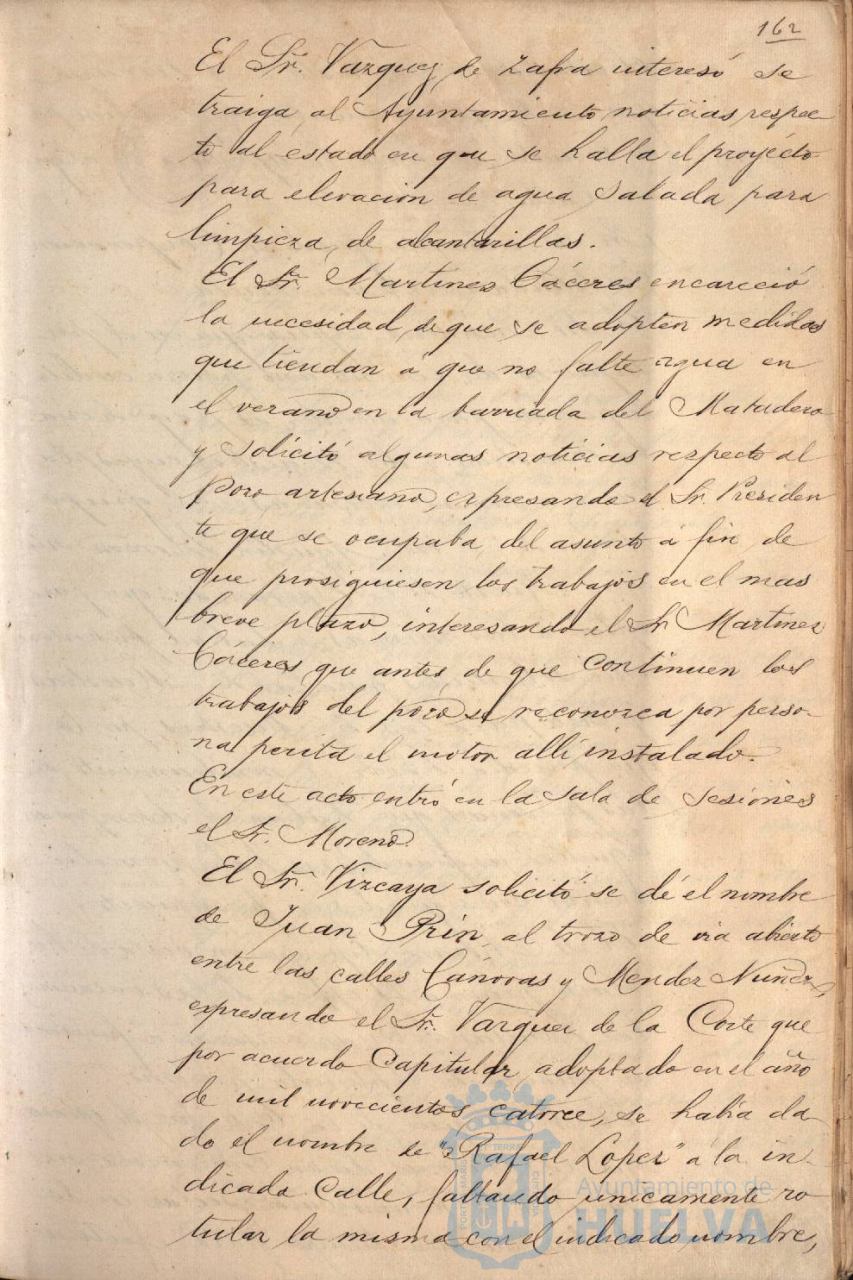 162
El Sr. Vazquez de Zafra interesó se
traiga al Ayuntamiento noticias respec
to al estado en que se halla el proyecto
para elevacion de agua salada para
limpieza de alcantarillas.
El Sr. Martinez Cáceres encareció
la necesidad de que se adopten medidas
que tiendan á que no falte agua en
el verano en la barriada del Matadero
y solicitó algunas noticias respecto al
pozo artesiano, expresando el Sr. Presiden
te que se ocupaba del asunto á fin de
que prosiguiesen los trabajos en el mas
breve plazo, interesando el Sr Martinez
Cáceres que antes de que continuen los
trabajos del pozo se reconozca por perso-
na perita el motor allí instalado.
En este acto entró en la Sala de Sesiones
el Sr. Moreno.
El Sr. Vizcaya solicitó se dé el nombre
de Juan Prin al trozo de via abierto
entre las calles Cánovas y Mendez Nuñez,
expresando el Sr. Vazquez de la Corte que
por acuerdo Capitular adoptado en el año
de mil novecientos catorce, se habia da-
do el nombre de "Rafael Lopez" á la in-
dicada calle, faltando unicamente ro
tular la misma con el indicado nombre,
Ayuntamiento de
HUELVA